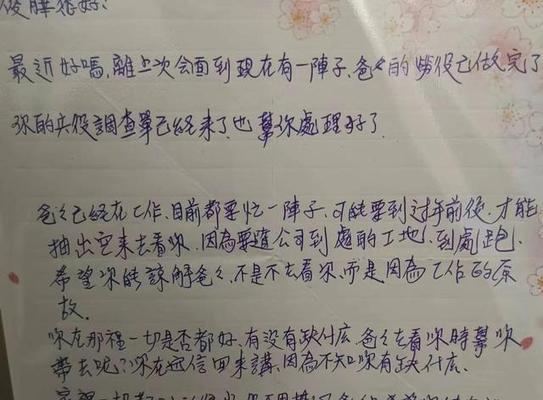 最近好嗎,離上次会面到現在有一陣子,爸々的勞役已做完了
你的兵役調查單已経来了也幫你處理好了
爸々已経在工作,目前都要忙一陣子,可能要到过年前後,才能
抽出空来去看你,因為要遶公司到處的工地,到處跑.
希望你能諒解爸々,不是不去看你,而是因為工作的原
故.
你在那裡一切是否都好,有没有缺什広,爸々去看你時幫你
帶去呢?你在远信回来講,因為不知你有缺什広.